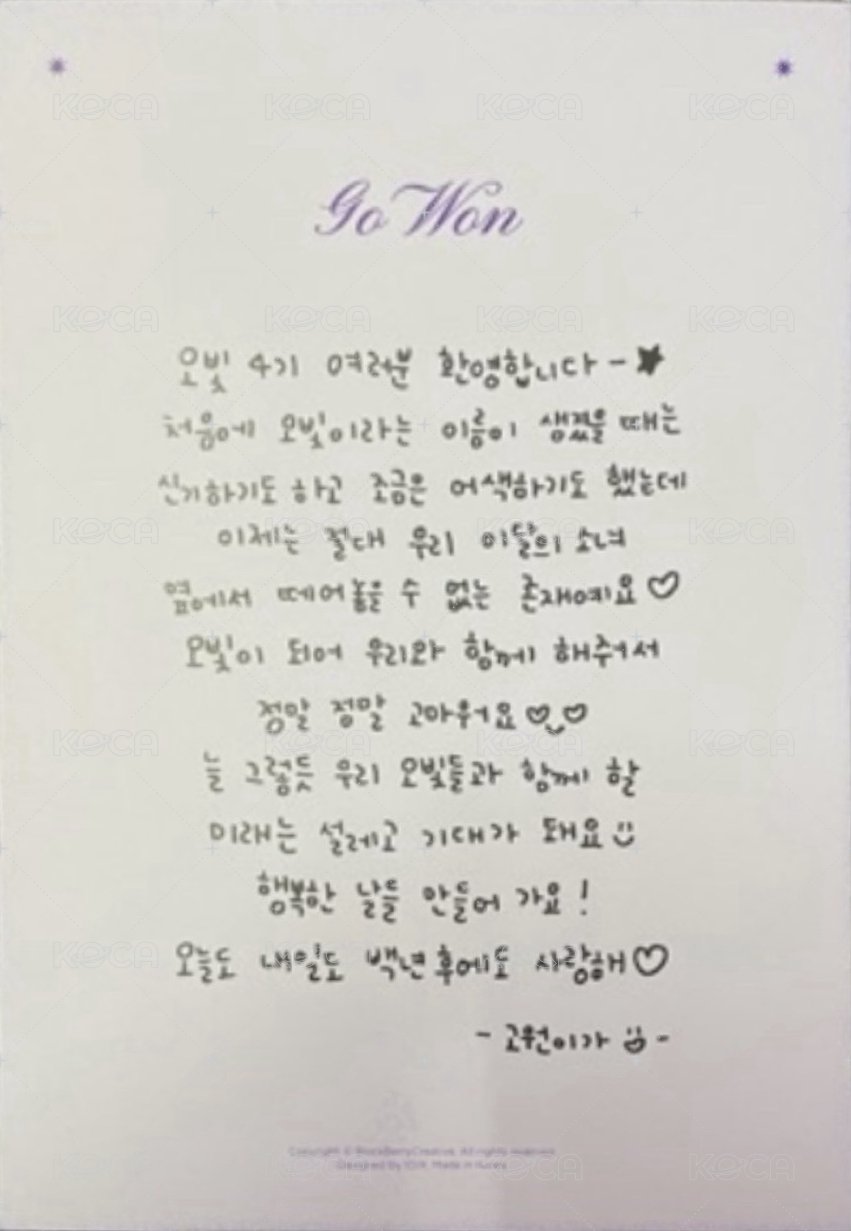 Go Won
오빛 4기 여러분 환영합니다 - ★
처음에 오빛이라는 이름이 생겼을 때는
신기하기도 하고 조금은 어색하기도 했는데
이제는 절대 우리 이달의 소녀
옆에서 떼어놓을 수 없는 존재예요♡
오빛이 되어 우리와 함께 해주셔서
정말 정말 고마워요♡‿♡
늘 그렇듯 우리 오빛들과 함께 할
미래는 설레고 기대가 돼요 :)
행복한 날들 만들어 가요!
오늘도 내일도 백년후에도 사랑해♡
- 고원이가 :D -
Copyright © BlockBerryCreative. All rights reserved.
Designed by Made in Korea
KOCA